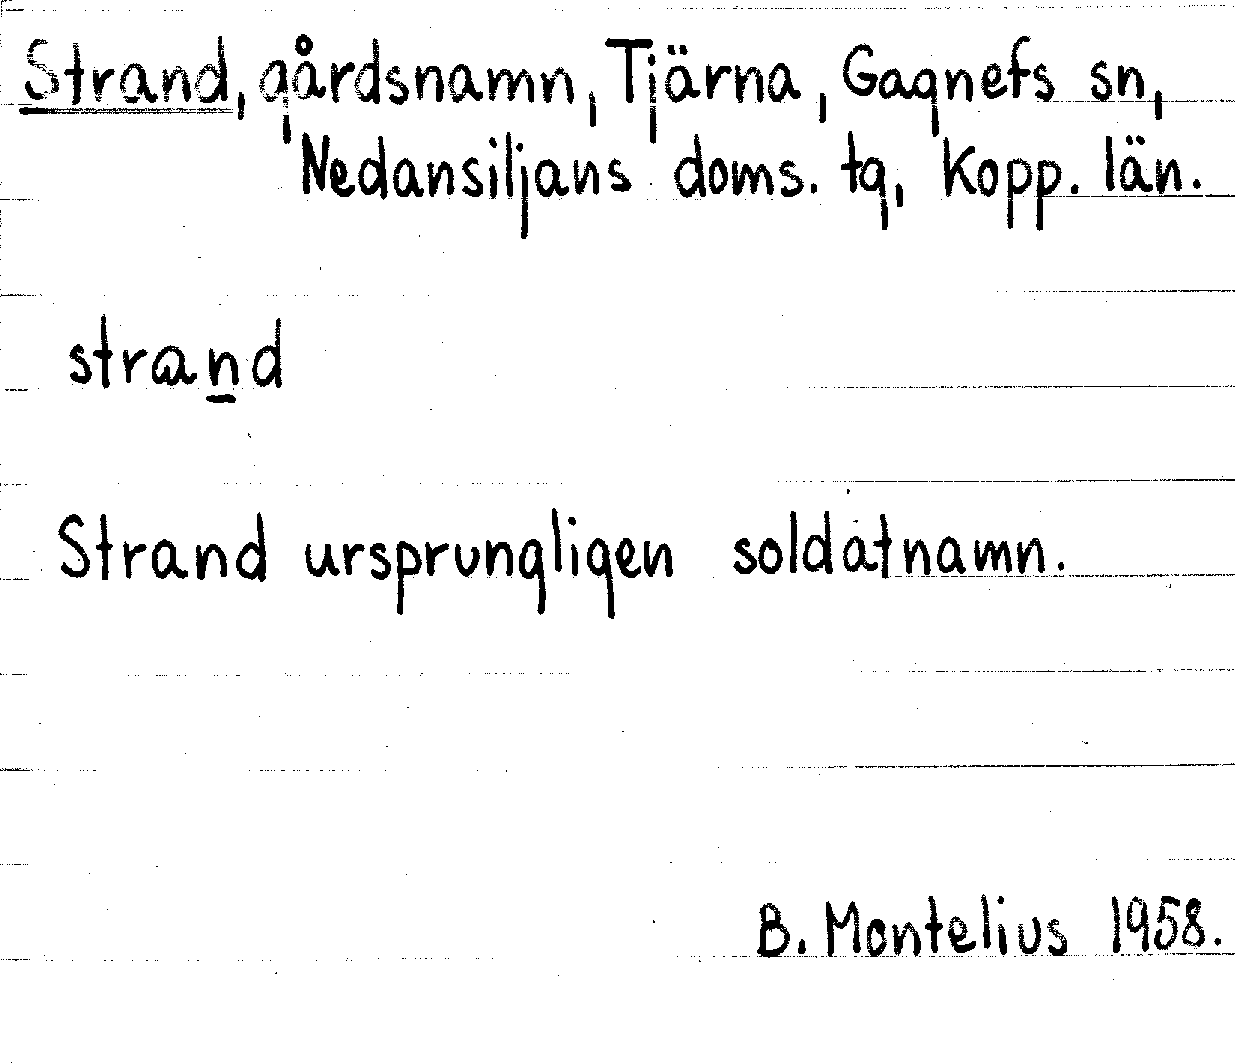 Strand, gårdsnamn, Tjärna, Gagnefs sn,
Nedansiljans doms. tg, Kopp. län.
strand
Strand ursprungligen soldatnamn.
B. Montelius 1958.